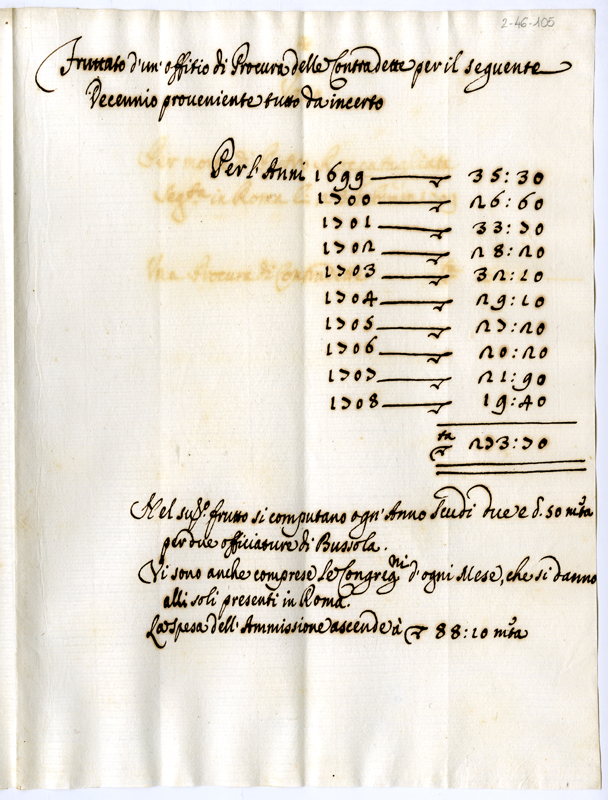 2-46-105
Fruttato d'un' offitio di Procura delle Contradette per il seguente
Decennio proveniente tutto da incerto
Per l'Anni 1699 — 35:30
1700 — 26:60
1701 — 33:70
1702 — 28:20
1703 — 32:10
1704 — 29:10
1705 — 27:20
1706 — 20:20
1707 — 21:90
1708 — 19:40
273:70
Nel sud.º frutto si computano ogn' Anno Scudi due e b. 50 mta
per due officiature di Bussola.
Vi sono anche comprese le Congregni d'ogni Mese, che si danno
alli soli presenti in Roma.
La spesa dell' Ammissione ascende à 88:10 mta